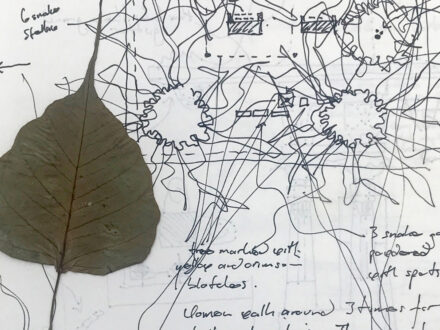 6 snake
stones
tree marked with
yellow and crimson
blotches.
3 snake
powdered
with spots
Women walk around 3 times for